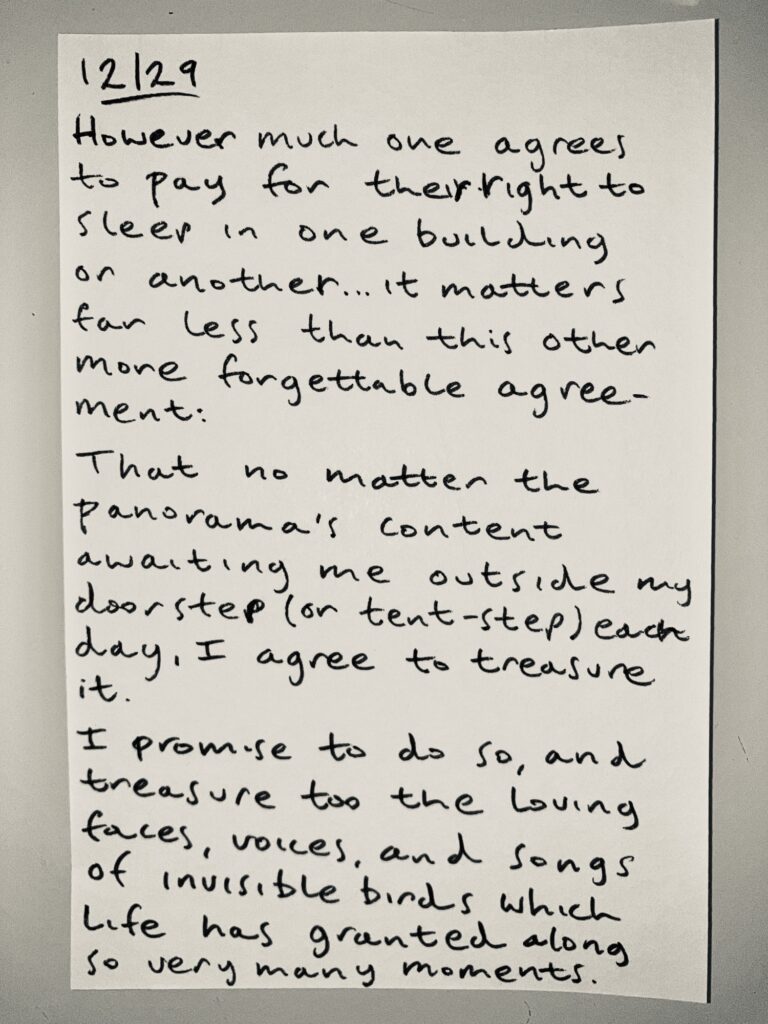 12/29
However much one agrees
to pay for their right to
sleep in one building
or another... it matters
far less than this other
more forgettable agree-
ment:
That no matter the
panorama's content
awaiting me outside my
doorstep (or tent-step) each
day, I agree to treasure
it.
I promise to do so, and
treasure too the loving
faces, voices, and songs
of invisible birds which
Life has granted along
so very many moments.